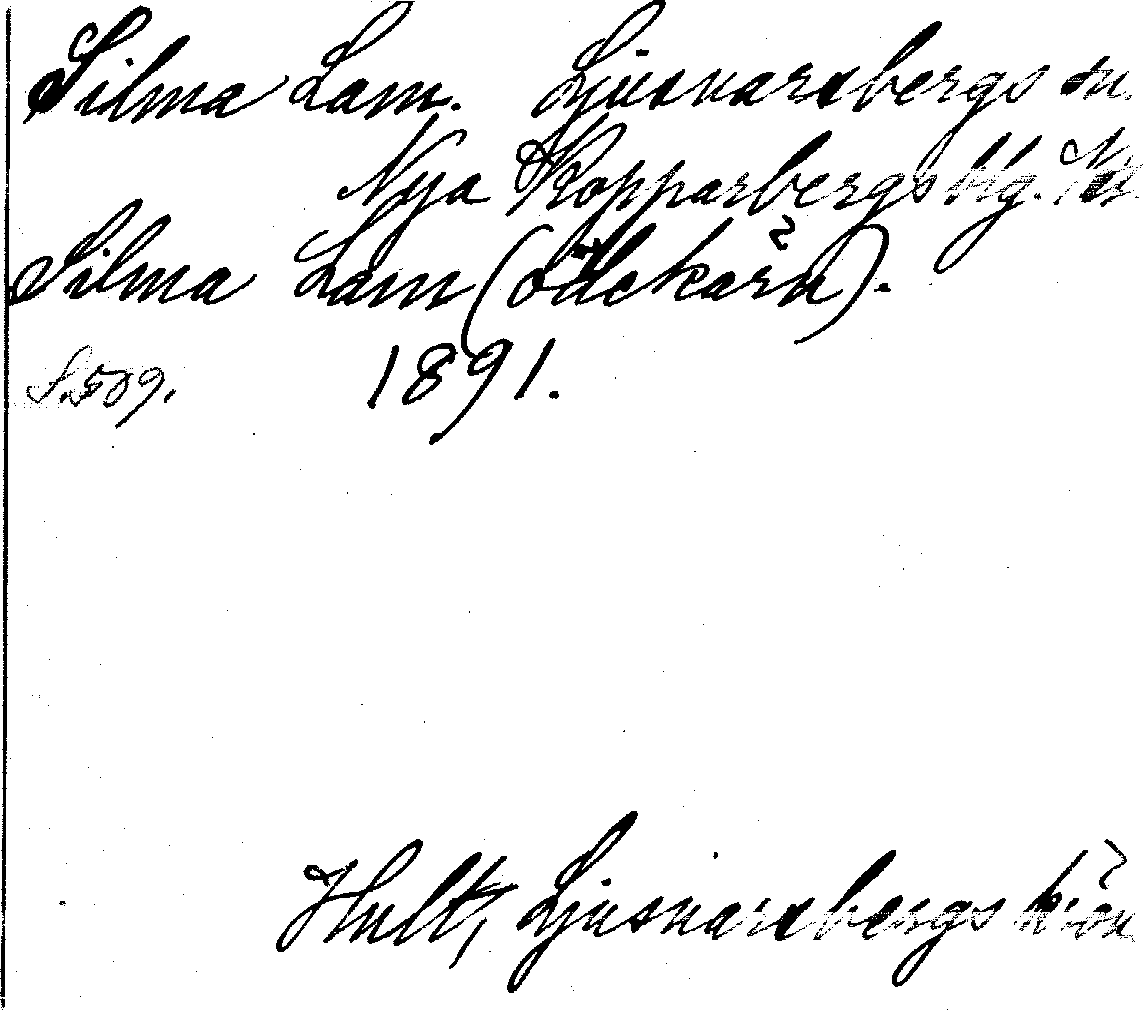 Silma Lam. Ljusnarsbergs sn.
Nya Kopparbergs blg.
Silma Lam (ödekärn).
S. 509. 1891.
Hult, Ljusnarsbergs krön